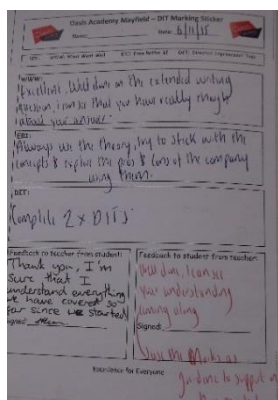 Oasis Academy Mayfield – DIT Marking Sticker
Name: Date: 6/11/15
WWW:
Excellent. Well done on the extended writing
question, I can see that you have really thought
about your answer.
EBI:
Always use the theory, try to stick with the
concepts & explain the pros & cons of the company
using them.
DIT:
Complete 2 x DITs
Feedback to teacher from student:
Thank you, I'm
sure that I
understand everything
we have covered so
far since we started
Signed:
Feedback to student from teacher:
Well done, I can see
your understanding
coming along
Signed:
Use the Marks as
guidance to support
Excellence for Everyone